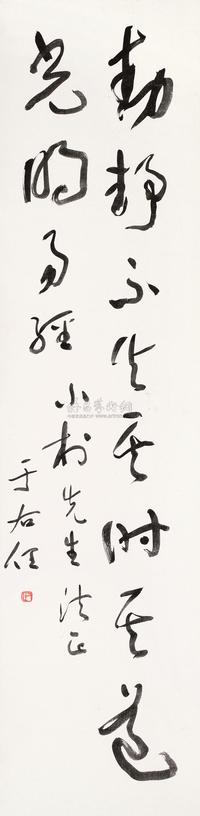 動靜不失其時其道
光明易經
小村先生法正
于右任